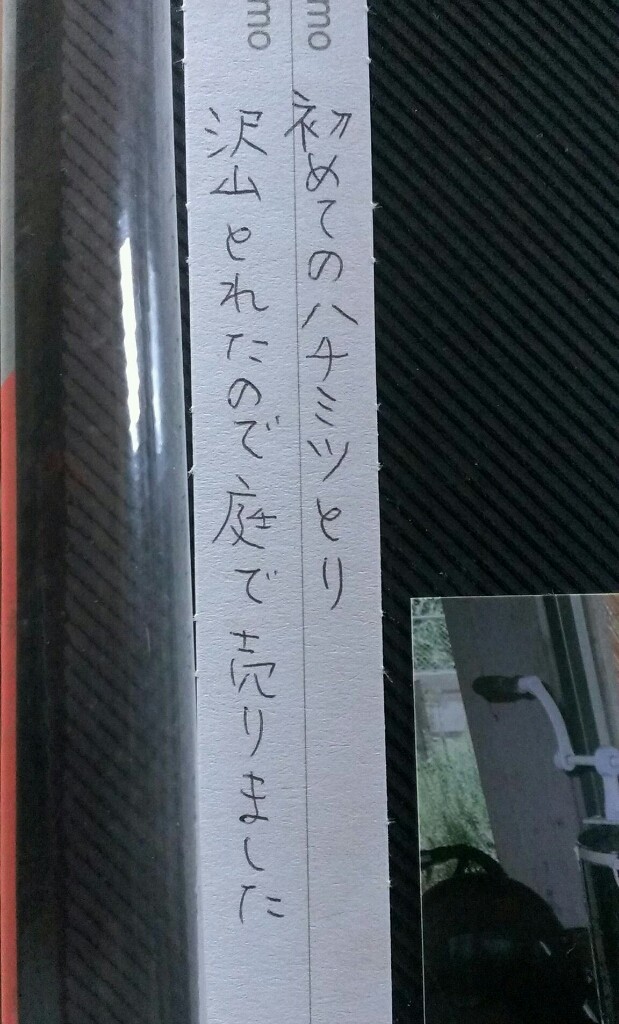 mo
初めてのハチミツとり
mo
沢山とれたので庭で売りました